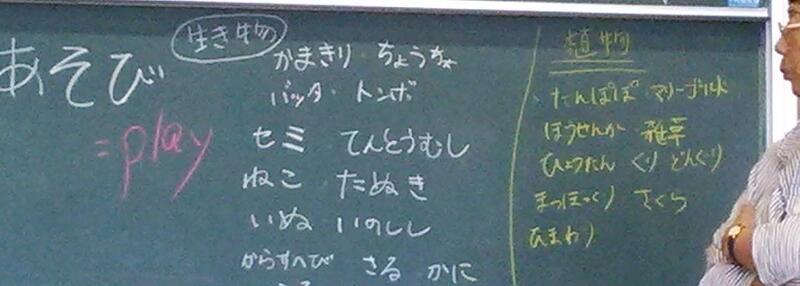 あそび
= play
生き物
かまきり ちょうちょ
バッタ・トンボ
セミ てんとうむし
ねこ たぬき
いぬ いのしし
からすへび さる かに
植物
たんぽぽ マリーゴールド
ほうせんか 雑草
ひょうたん くり どんぐり
まつぼっくり さくら
ひまわり